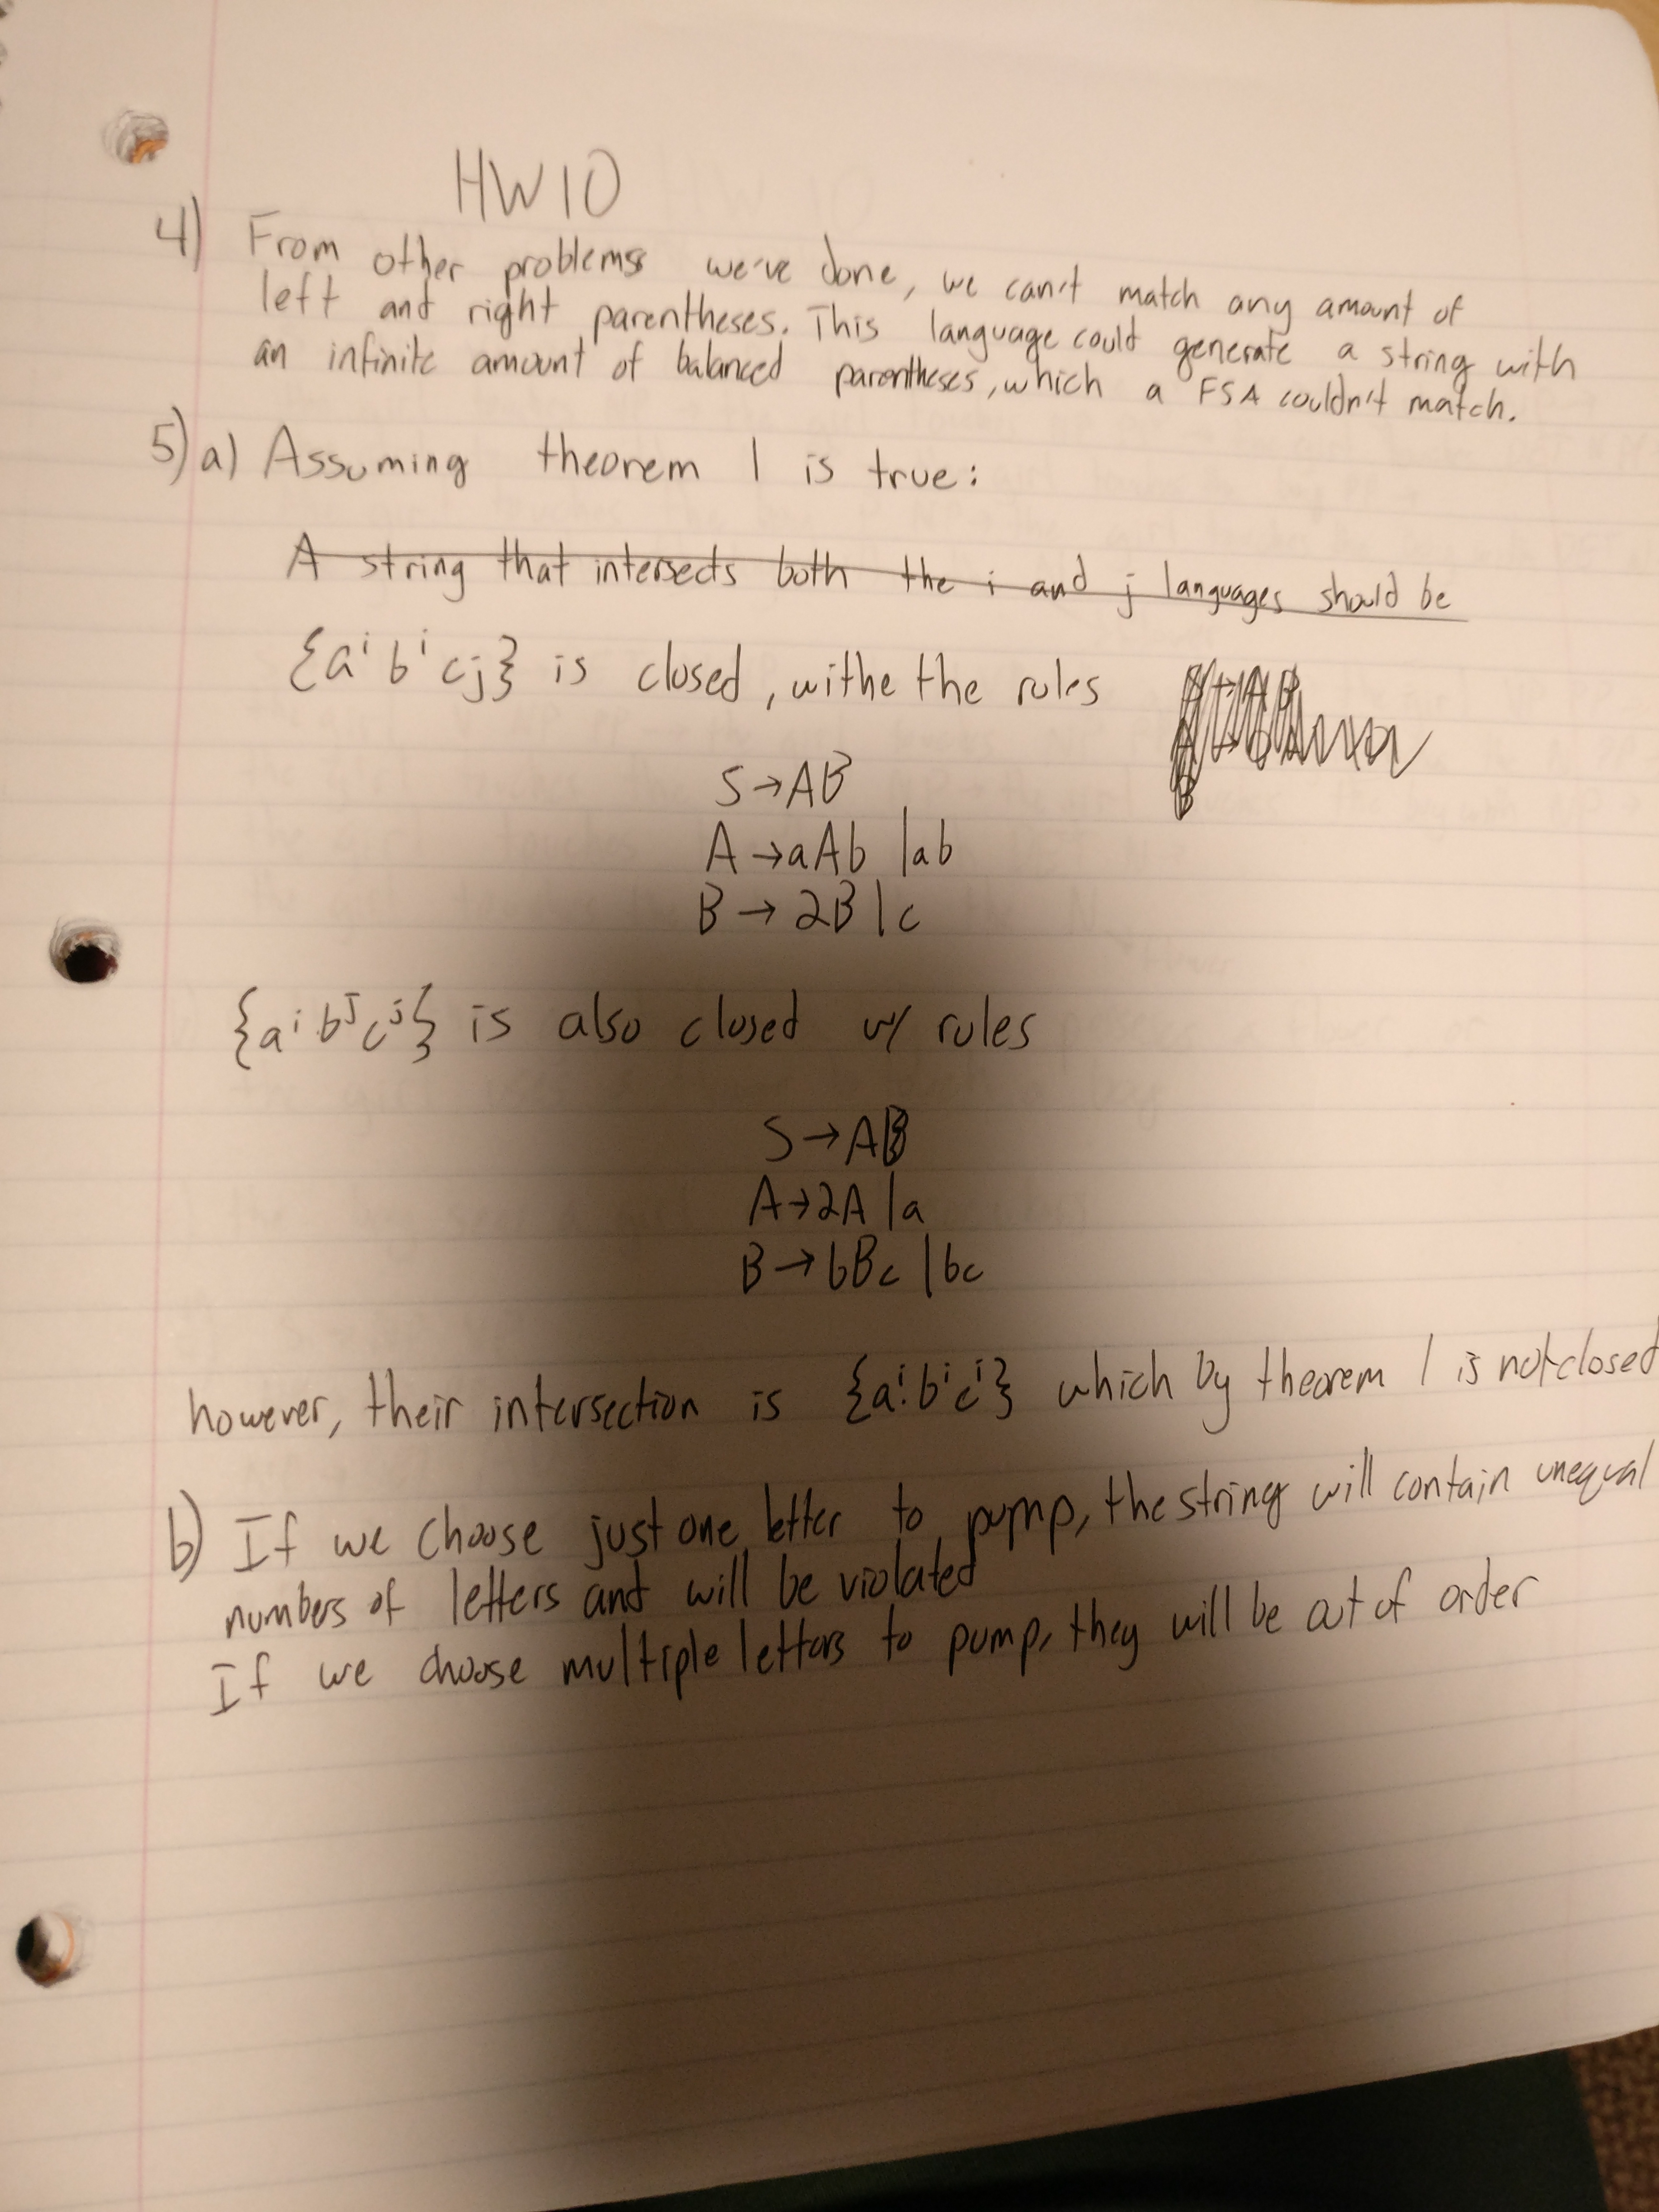 HW10
4) From other problems we've done, we can't match any amount of
left and right parentheses. This language could generate a string with
an infinite amount of balanced parentheses, which a FSA couldn't match.
5) a) Assuming theorem 1 is true:
A string that intersects both the i and j languages should be
{aⁱ bⁱ cj} is closed, withe the rules
S→AB
A→aAb |ab
B→2B|c
{aⁱ bʲ cʲ} is also closed w/ rules
S→AB
A→2A|a
B→bBc |bc
however, their intersection is {aⁱ bⁱ cⁱ} which by theorem 1 is not closed
b) If we choose just one letter to pump, the string will contain unequal
numbers of letters and will be violated
If we choose multiple letters to pump, they will be out of order